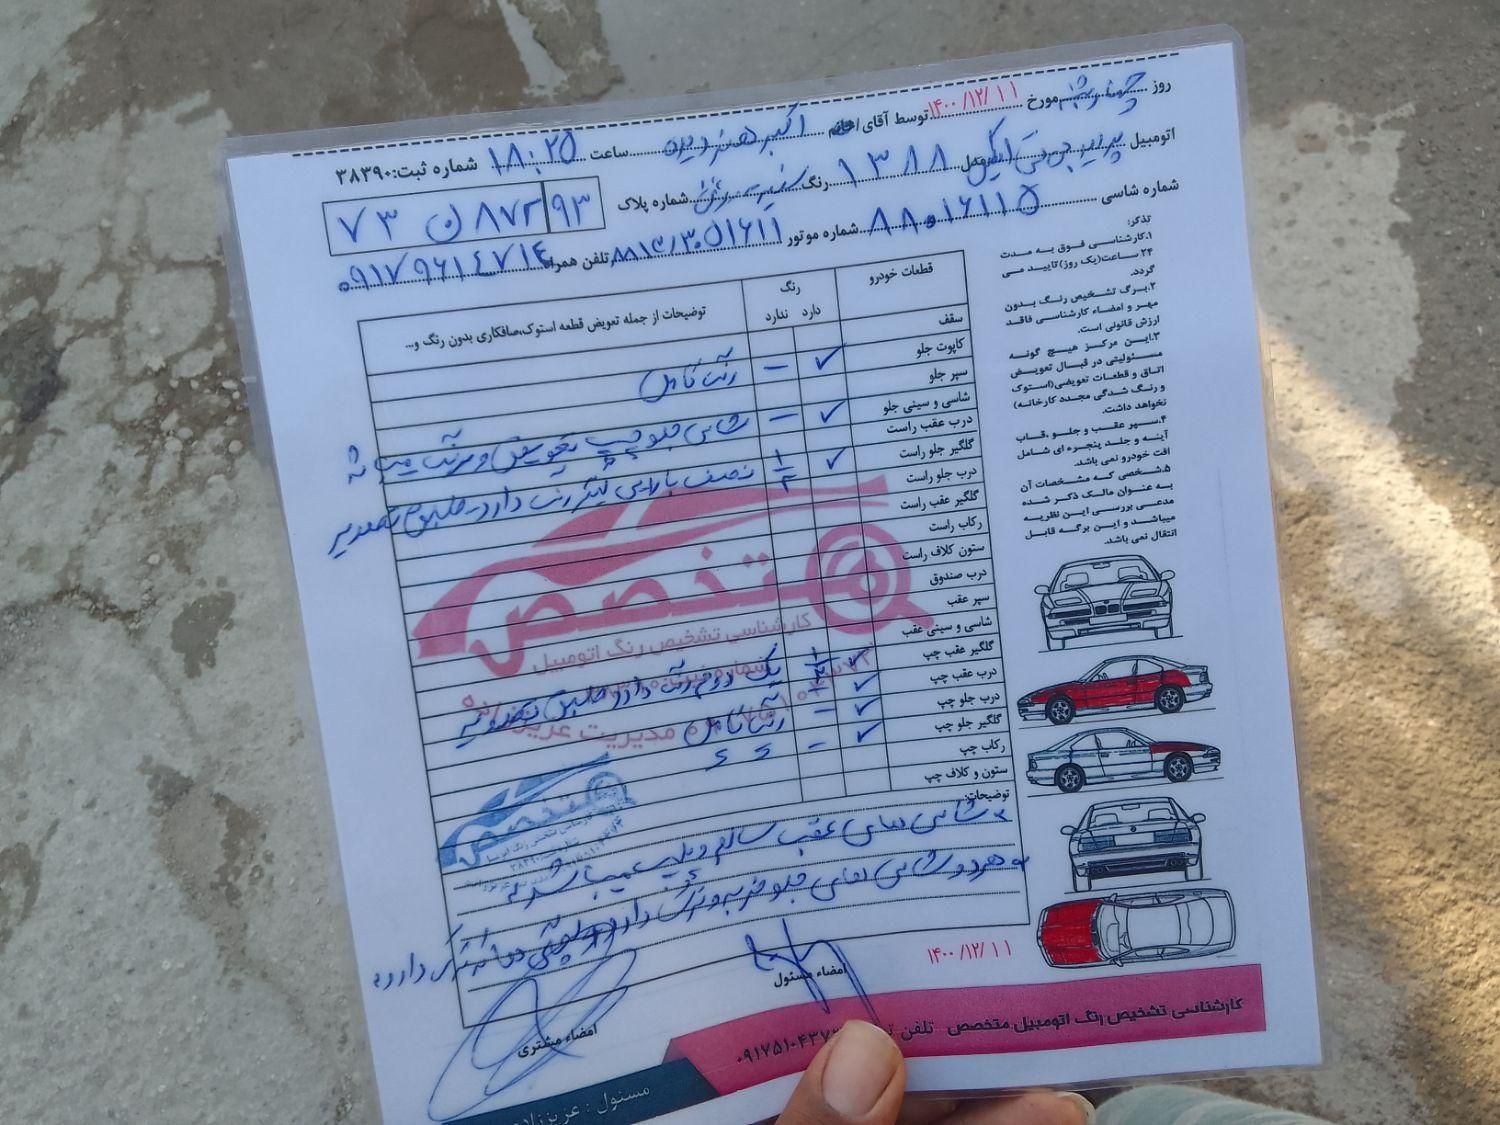 روز چهارشنبه مورخ ۱۴۰۰/۱۲/۱۱ توسط آقای/خانم اکبر هنرور ساعت ۱۸:۲۵ شماره ثبت:۳۸۳۹۰
اتومبیل مدل ۱۳۸۸ رنگ سفید روغنی شماره پلاک ۷۳ ن ۸۷۲ ۹۳
شماره شاسی ۸۸۰۱۶۱۱۵ شماره موتور تلفن همراه ۰۹۱۷۹۶۱۴۷۱۴
تذکر:
۱.کارشناسی فوق به مدت
۲۴ ساعت(یک روز)تایید می
گردد.
۲.برگ تشخیص رنگ بدون
مهر و امضاء کارشناسی فاقد
ارزش قانونی است.
۳.این مرکز هیچ گونه
مسئولیتی در قبال تعویض
اتاق و قطعات تعویضی(استوک
و رنگ شدگی مجدد کارخانه)
نخواهد داشت.
۴.سپر عقب و جلو ،قاب
آینه و جلد پنجره ای شامل
افت خودرو نمی باشد.
۵.شخصی که مشخصات آن
به عنوان مالک ذکر شده
مدعی بررسی این نظریه
میباشد و این برگه قابل
انتقال نمی باشد.
قطعات خودرو رنگ توضیحات از جمله تعویض قطعه استوک،صافکاری بدون رنگ و...
دارد ندارد
سقف
کاپوت جلو ✓ – رنگ کامل
سپر جلو
شاسی و سینی جلو ✓ – شاسی جلو چپ تعویض و رنگ میباشد
درب عقب راست
گلگیر جلو راست ✓ ۱/۲ نصف پایین گلگیر رنگ دارد طبق تصویر
درب جلو راست
گلگیر عقب راست
رکاب راست
ستون کلاف راست
درب صندوق
سپر عقب
شاسی و سینی عقب
گلگیر عقب چپ ✓
درب عقب چپ ✓ یک دوم رنگ دارد طبق تصویر
درب جلو چپ ✓ – رنگ کامل
گلگیر جلو چپ ✓ – ؟ ؟
رکاب چپ
ستون و کلاف چپ
متخصص
کارشناسی تشخیص رنگ اتومبیل
مدیریت عزیززاده
توضیحات:
شاسی های عقب سالم و پلمپ میباشند
هر دو شاسی های جلو ضربه و رنگ دارد
متخصص
امضاء مسئول
امضاء مشتری
۱۴۰۰/۱۲/۱۱
کارشناسی تشخیص رنگ اتومبیل متخصص
مسئول : عزیززاده